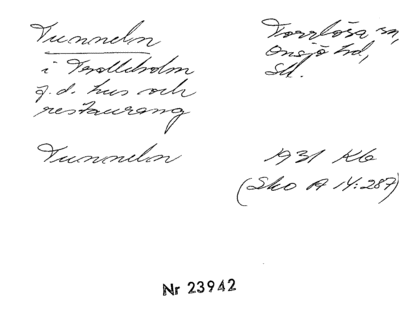 Tunneln
i Trolleholm
f.d. hus och
restaurang
Torrlösa sn,
Onsjö hd,
Sk.
Tunneln
1931 K6
(Sko A 14:287)
Nr 23942